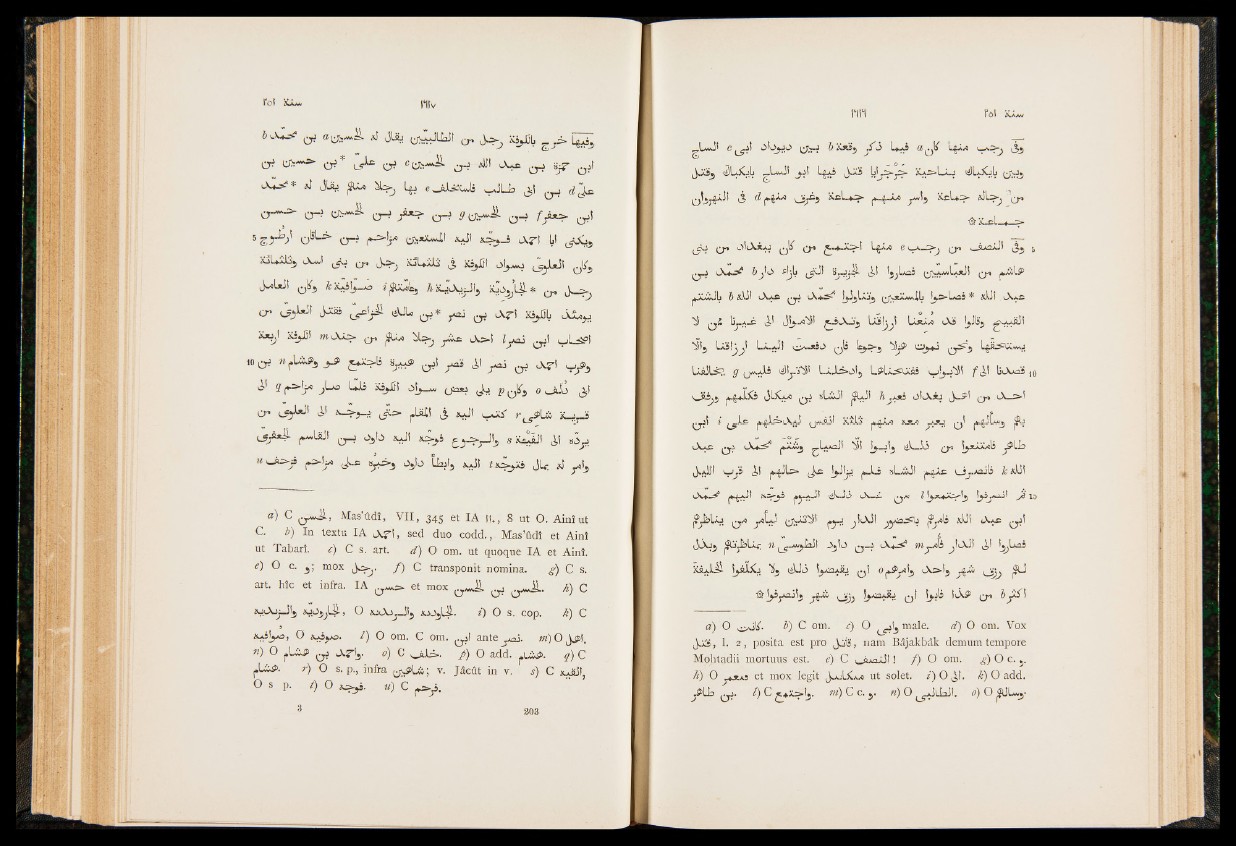 سنة ٢٥١ ١٦١٦
وفى رجب منها كان a فيما ذكر وقعة b بين ديوداد ابى c الساج
وبين بايكباك بناحية جَرْجَرايا قتل فيها ابو الساج بايكباك وقتل
من رجاله جماعة واسر منهم جماعة وغرق منهم d فى النهروان
جماعة ۞
5 وفى النصف من رجب e منها اجتمع من كان ببغداد من بنى
هاشم من العبّاسيّين فصاروا الى الجزيرة التى بازاء دار b محمّد بن
عبد الله *فصاحوا بالمستعين وتناولوا محمّد بن عبد الله b بالشتم
القبيح وقالوا قد مُنِعْنا ارزاقنا وتدفع الاموال الى غيرنا ممّن لا
يستحقّها ونحن نموت هزلا وجوعا فان دفعت الينا ارزاقنا والّا
10 قصدنا الى f الابواب ففتحناها وادخلنا الاتراك فليس g يخالفنا
احد من اهل بغداد فعبر h اليهم الشاه بن ميكال فكلّمهم ورفق
بهم وسألهم ان يعبر معه منهم ثلثة انفس ليدخلهم على i ابن
طاهر فامتنعوا من ذلك وابوا الّا الصياح وشَتْم محمّد بن عبد
الله k فانصرف عنهم الشاه فلم يزالوا على حالهم الى قرب الليل
15 ثمّ انصرفوا واجتمعوا l من غد ذلك اليوم فوجّه اليهم محمّد
ابن عبد الله فامرهم بحضور الدار يوم الاثنين ليأمر من يناظرهم
فصاروا الى الدار فأمر m محمّد بن داود الطوسىّ n بمناظرتهم وبذل
لهم رزق شهر واحد وامرهم o ان يقبضوا ذلك ولا يكلّفوا الخليفة
اكثر b من هذا فابوا ان يقبضوا رزق شهر وانصرفوا ۞
a) O كانت. b) C om. c) O وابى male. d) O om. Vox
قتل, l. 2, posita est pro قاتل, nam Bâjakbâk demum tempore
Mohtadii mortuus est. e) C النصف! f) O om. g) O c. و.
h) O et mox legit ut solet. i) O الى. k) O add.
بن طاهر. l) C واجتمع. m) C c. و. n) O الطالبى. o) O وسالهم.
سنة ٢٥١ ١٦١٧
وفيها خرج بالكوفة رجل من الطالبيّين يقال له الحسين a بن محمّد b
ابن حمزة بن عبد الله بن الحسين c بن علىّ *بن حسين بن
علىّ d بن ابى طالب فاستخلف e بها رجلا منهم يقال له *محمّد
ابن جعفر f بن الحسين g بن جعفر بن الحسين بن حسن
5 ويكنى ابا احمد فوجّه اليه المستعين مزاحم بن خاقان ارطوج
وكان العلوىّ بسواد الكوفة فى ثلثمائة رجل من بنى اسد وثلثمائة
رجل من *الجاروديّة والزيديّة h وعامّتهم i صوافيّة k وكان العامل
يومئذ بالكوفة احمد بن نصر *بن مالك الخزاعىّ فقتل العلوىّ من
اصحاب ابن نصر l احد عشر رجلا منهم من جند m الكوفة اربعة
10 وهرب احمد بن نصر الى قصر ابن هبيرة فاجتمع هو وهشام n بن
ابى دُلَف o وكان p يلى بعض سواد الكوفة فلمّا صار مزاحم q الى
قرية شاهى r كتب اليه فى المقام حتّى يوجّه الى العلوىّ من
يردّه الى الفَيْئة s والرجوع فوجّه اليه داود بن القاسم الجعفرىّ
وامر له بمال فتوجّه t اليه وابطأ داود وخبره على مزاحم فزحف u
a) C الحسن, Mas'ûdî, VII, 345 et IA ut O. Ainî ut
C. b) In textu IA احمد, sed duo codd., Mas'ûdî et Ainî
ut Tabarî. c) C s. art. d) O om. ut quoque IA et Ainî.
e) O c. و; mox رجل. f) C transponit nomina. g) C s.
art. hîc et infra. IA حسن et mox الحسن بن الحسن. h) C
الجاروديّة والزيديه, O الجارودىه والرىدىه. i) O s. cop. k) C
صوافيه, O صوفيه. l) O om. C om. ابن ante نصر. m) O اهل.
n) O واحمد بن هشام. o) C خلف. p) O add. هشام. q) C
هشام. r) O s. p., infra شاهين; v. Jâcût in v. s) C النقيه,
O s p. t) O فوجه. u) C فرحم.
3 203